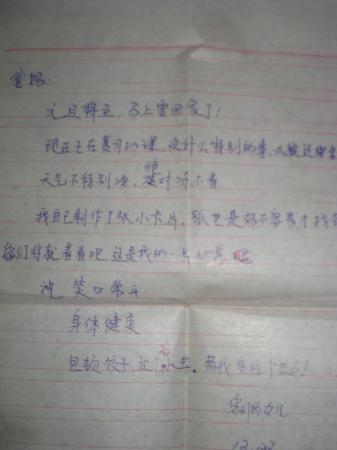 爸妈:
元旦将至，马上要回家了!
现正在复习功课，没什么特别的事，大概还
天气不特别冷，绝对冻不着
我自己制作了张小卡片，纸也是好不容易才找
您们将就着看吧，这是我的一点心意
祝 笑口常开
身体健康
包顿饺子，小点，替我多吃个
您们的女儿